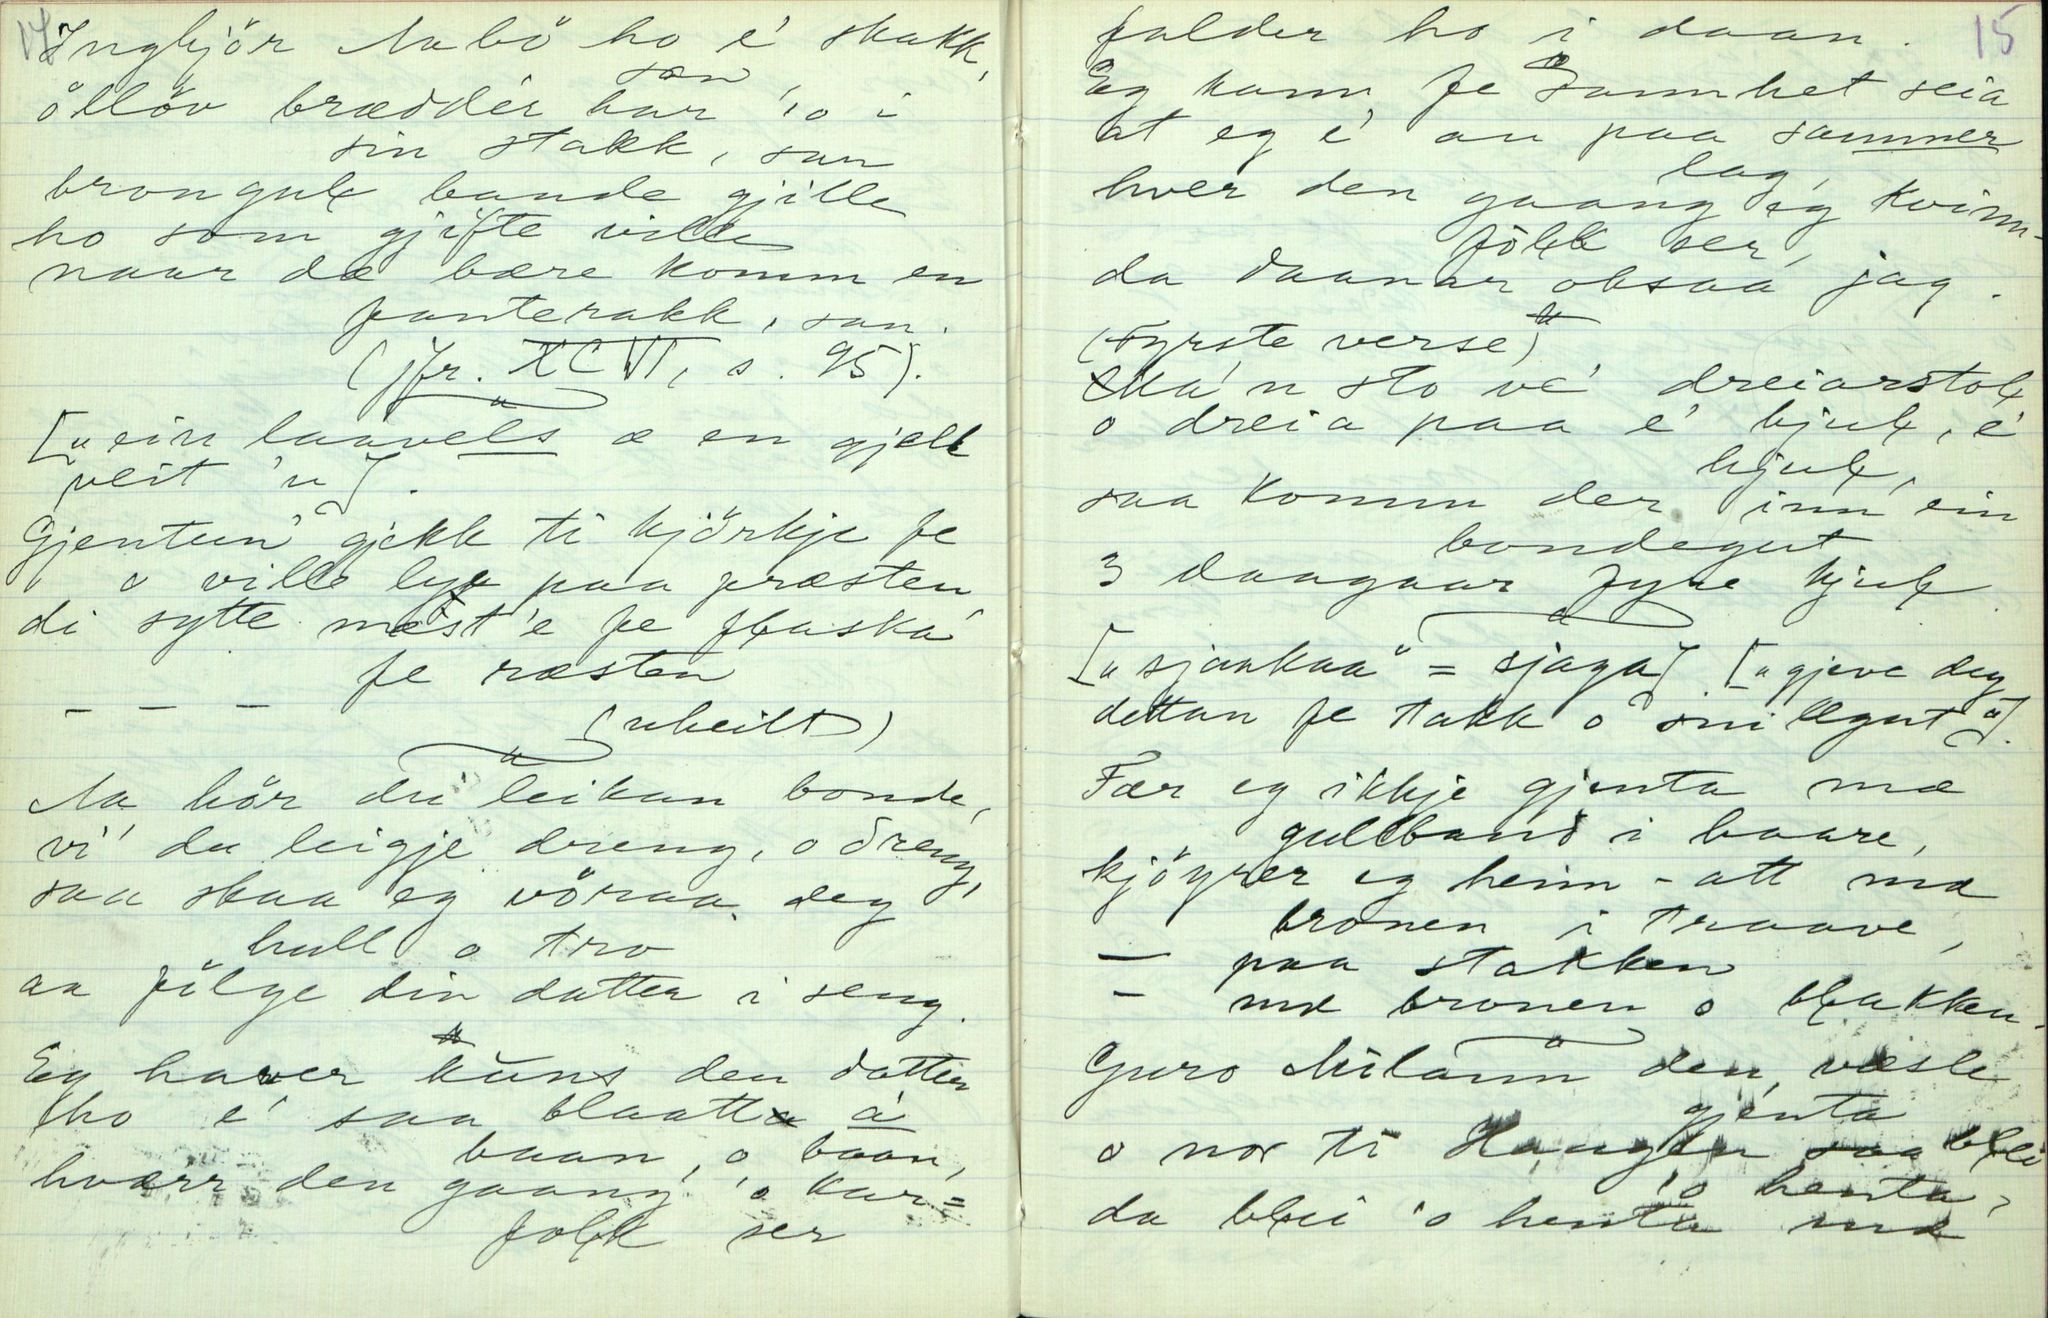 14
Ingbjör Nabö ho é skakk,
san
ölløv bræddér har 'o i
sin stakk, san
brongulE bande gjille
ho som gjifte ville
naar dæ bære komm en
fanterakk, san.
(jfr. XCVI, s. 95).
["ein laavels æ en gjelk
veit 'u"].
Gjentun' gjekk ti kjörkje fe
o ville lye paa præsten
di sytte mest 'e fe flaska'
fe ræsten
– – – (uheilt)
Na hör du leikan bonde,
vi' du leigje dreng, o dreng,
saa skaa eg vöraa deg
hull o tro
aa fölge din datter i seng.
Eg haver kuns den datter
ho é saa blaatt á
baan, o baan,
hværr den gaang 'o kar=
folk ser
15
falder ho i daan.
Eg kann fe sannhet seia
at eg é au paa sammer
lag,
hver den gaang eg kvinn-
fölk ser,
da daanar obsaa jag.
(Fyrste verse)
Eká'n sto vé dreiarstol
o dreia paa é hjul, é
hjul,
saa komm der inn ein
bondegut
3 daagaar fyre hjul
["sjaakaa" = sjaga]. ["gjeve deg
dettan fe takk o snillgut"].
Fær eg ikkje gjenta mæ
gullband i haare,
kjöyrer eg heim-att mæ
bronen i traave,
– paa stakken
– mæ bronen o blakken.
Guro Milann den vesle
gjenta
o nor ti Haugen saa blei
'o henta,
da blei 'o henta mæ